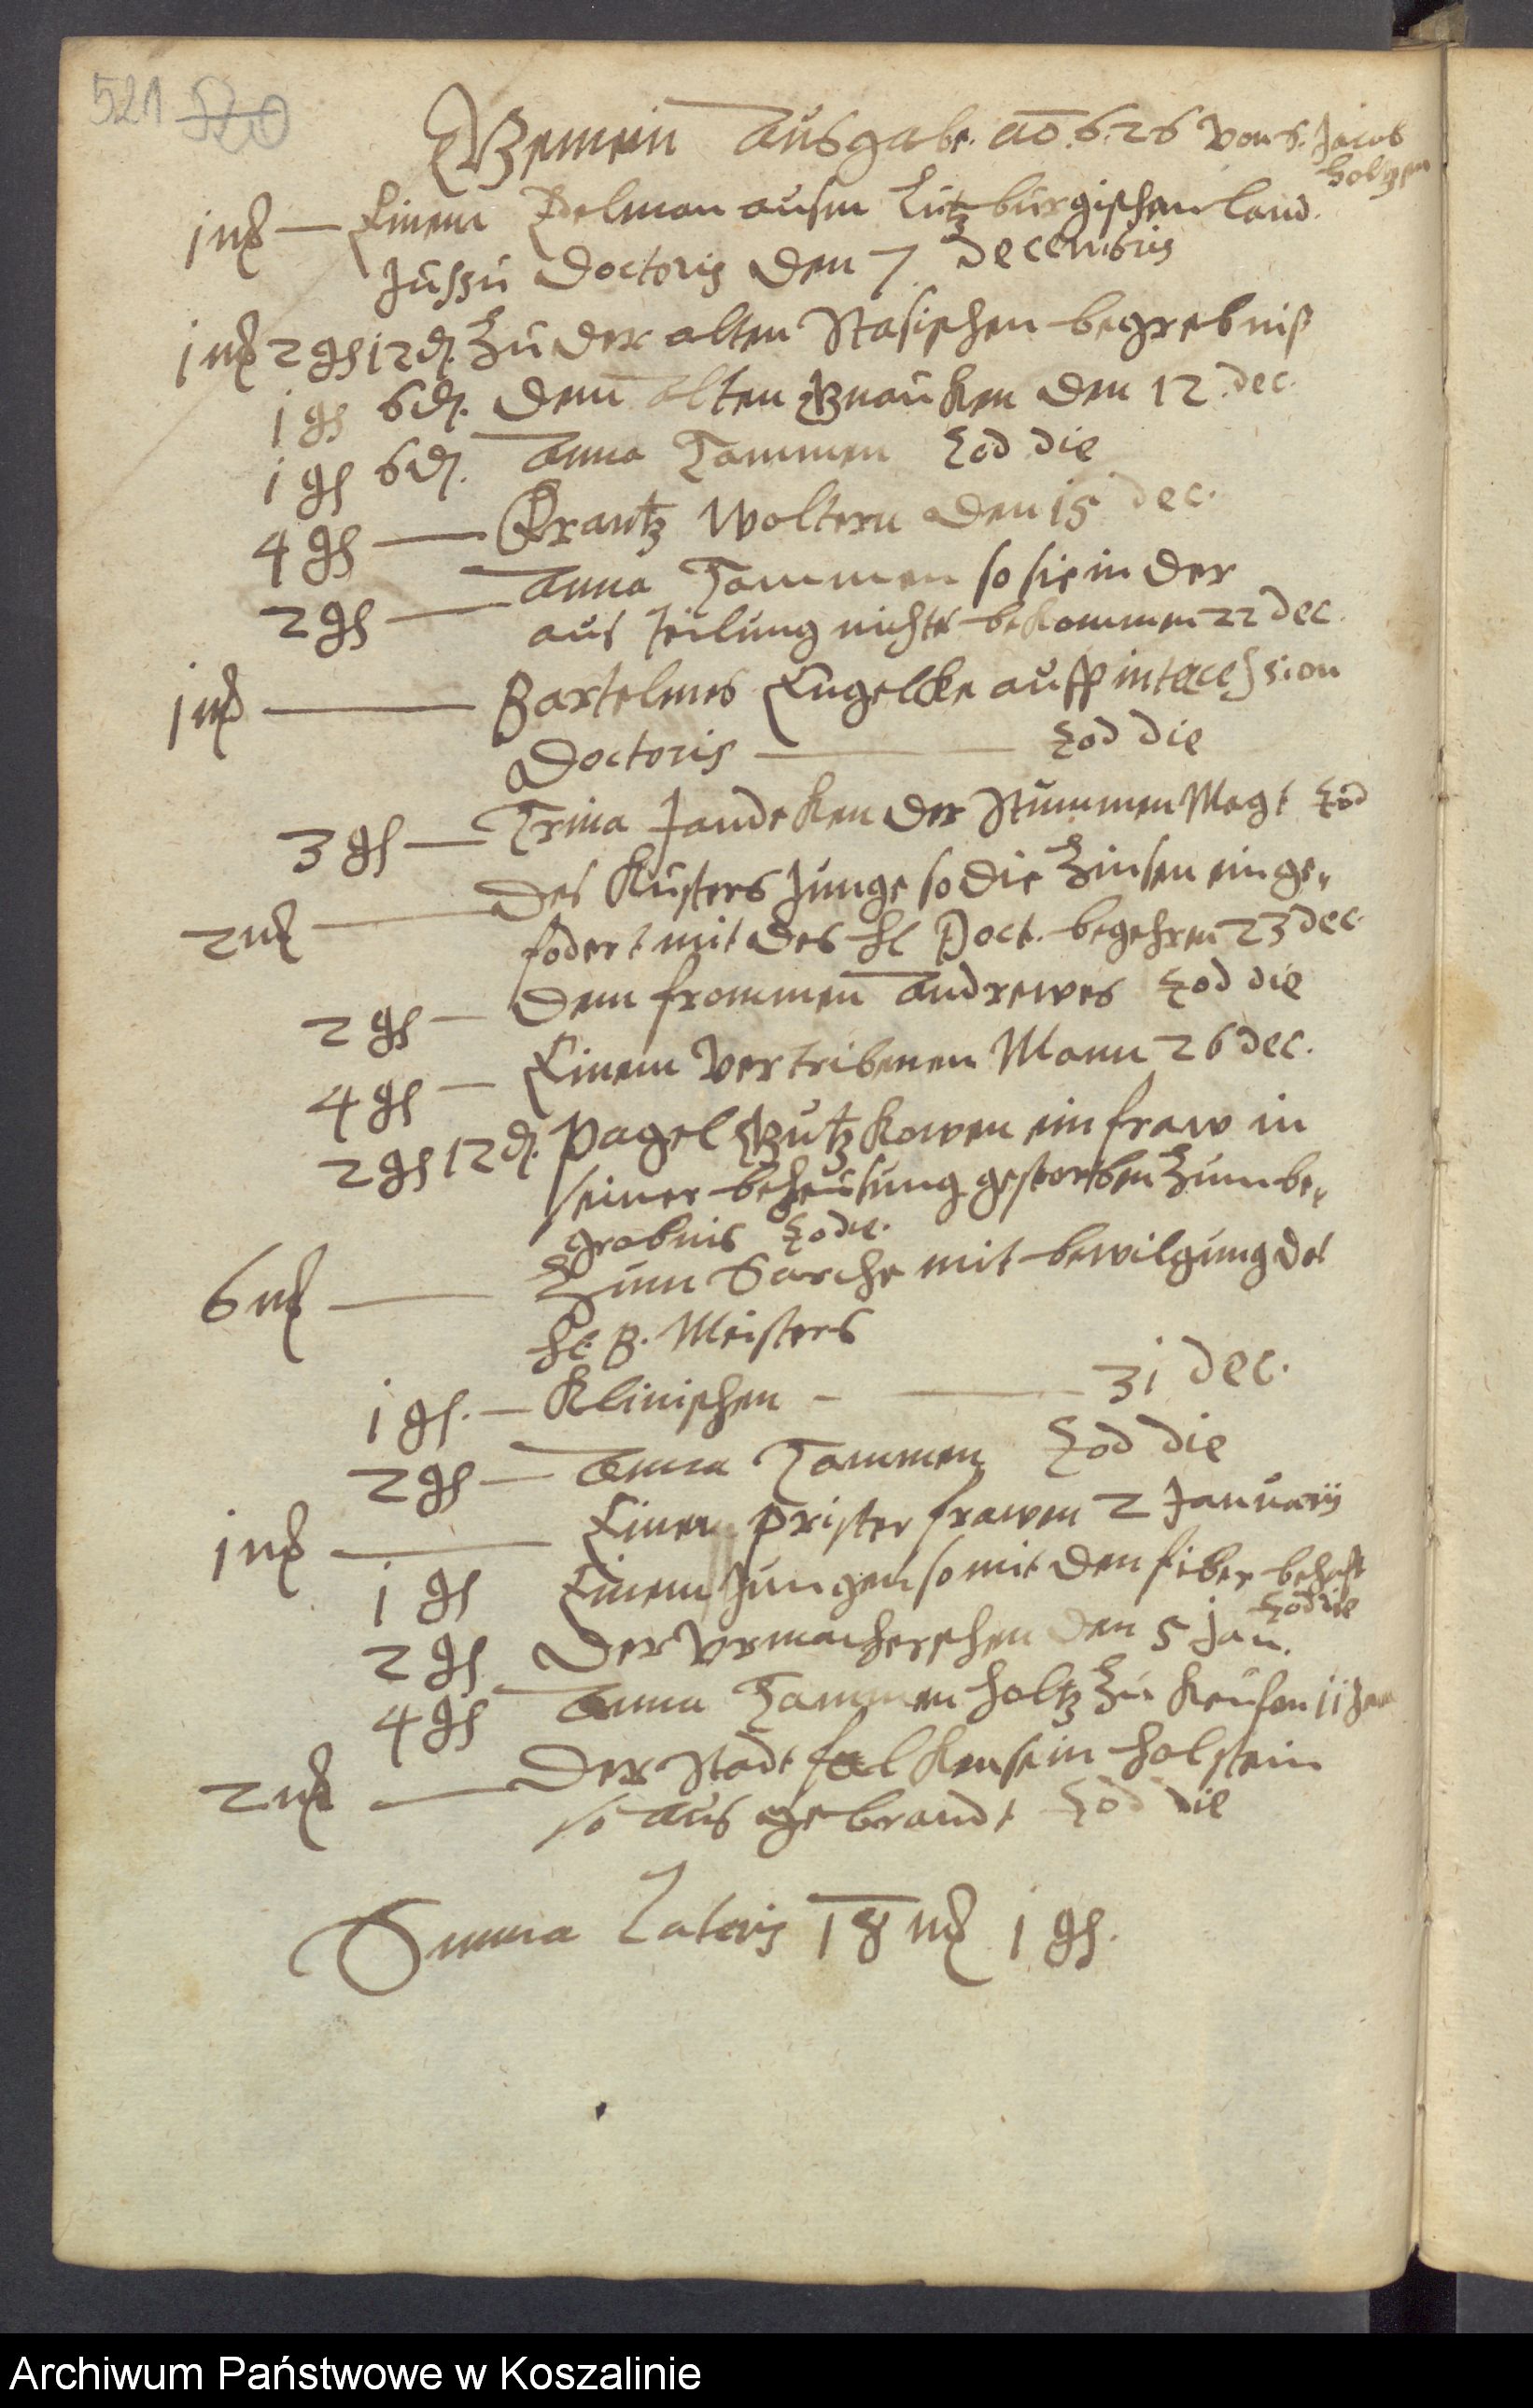 521 520
Gemein Ausgabe. ao. 626 von H. Jacob
Holtzen
j mk — Einem Edelman ausm Lützburgischen land.
Jussu Doctoris den 7. Decembris
j mk 2 gs 12 d. Zu der alten Stasischen begrebniß
1 gs 6 d. dem alten Gnauken den 12. dec.
1 gs 6 d. Anna Tammen Eod die
4 gs — Frantz Woltern den 15 dec.
2 gs — Anna Tammen so sie in der
aus teilung nichts bekommen 22 dec.
j mk — Bartelmes Engelcke auff intercession
Doctoris — Eod die
3 gs — Trina Jandeken der Stummen Magt Eod
2 mk — Des Küsters Junge so die Zinsen einge„
fodert mit des H. Doct. begehren 23 dec.
2 gs — Dem frommen Andrewes Eod die
4 gs — Einem Vertribenen Mann 26 dec.
2 gs 12 d. Pagel Gutzkowen ein fraw in
seiner beheusung gestorben Zum be„
grabnis Eod.
6 mk — Zum Sarche mit bewilgung des
H. B. Meisters
j gs. — Klinischen — 31 dec.
2 gs — Anna Tammen Eod die
j mk — Einer prister frawen 2 Januarii
j gs Einem Jungen so mit den fiber behaft
Eod die
2 gs Der Urmacherschen den 5 Jan.
4 gs Anna Tammen holtz Zu keufen 11 Jan
2 mk — Der Stadt in Holstein
so aus gebrandt Eod die
Summa Lateris 18 mk 1 gs.
Archiwum Państwowe w Koszalinie